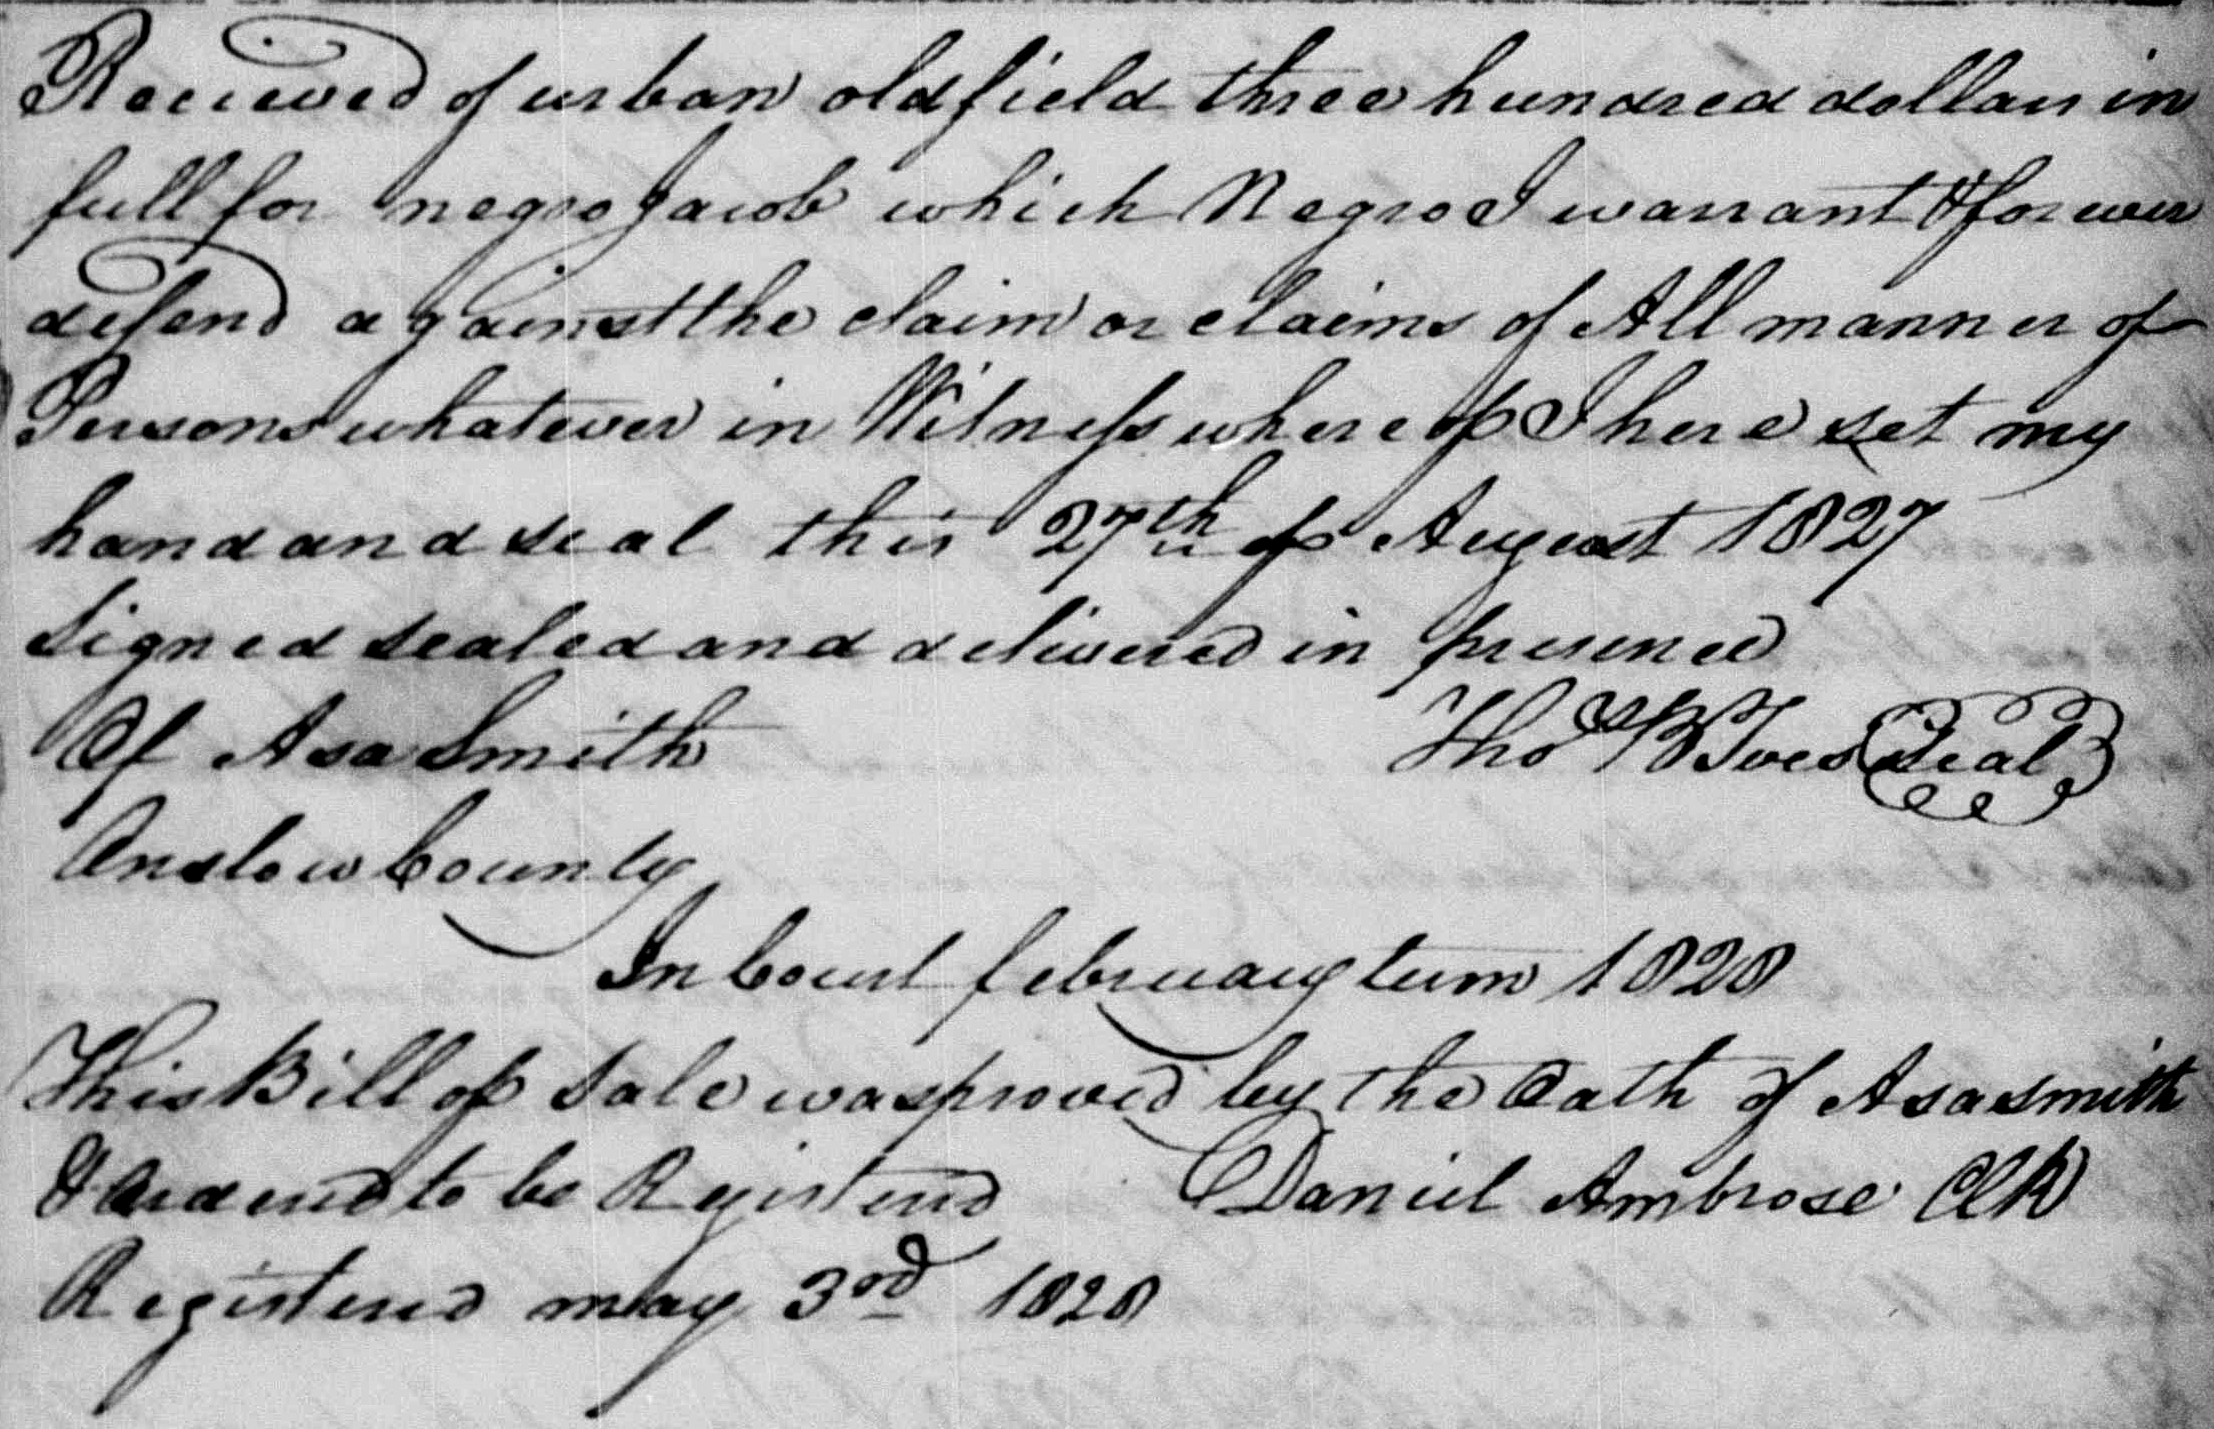 Received of urban oldfield three hundred dollars in
full for negro Jacob which Negro I warrant & forever
defend against the claim or claims of All manner of
Persons whatever in Witness whereof I here set my
hand and seal this 27th of August 1827
Signed sealed and delivered in presence
Of Asa Smith Thos B Ives Seal
Onslow County
In Court february term 1828
This Bill of Sale was proved by the Oath of Asa Smith
& Ordered to be Registered Daniel Ambrose Clk
Registered may 3rd 1828